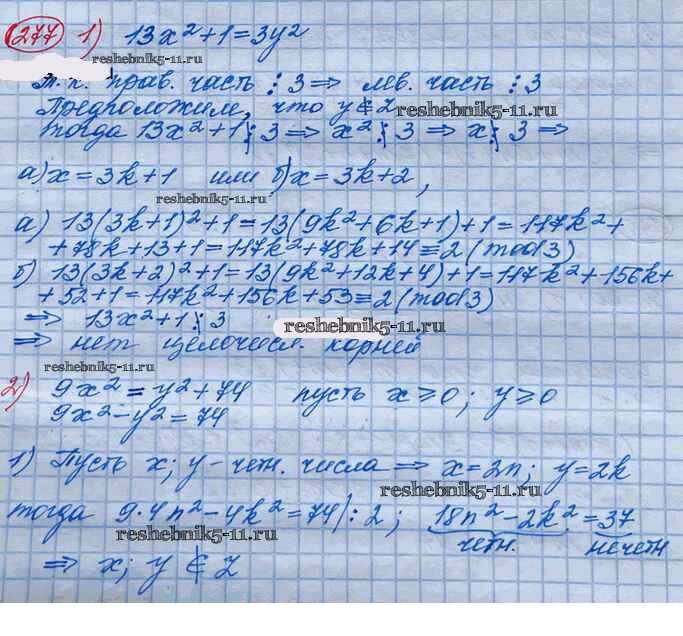 277 1) 13x²+1=3y²
reshebnik5-11.ru
Т.к. прав. часть ⋮ 3 ⇒ лев. часть ⋮ 3
Предположим, что y∉Z reshebnik5-11.ru
тогда 13x²+1 ⋮̸ 3 ⇒ x² ⋮̸ 3 ⇒ x ⋮̸ 3 ⇒
а) x=3k+1 или б) x=3k+2,
reshebnik5-11.ru
а) 13(3k+1)²+1=13(9k²+6k+1)+1=117k²+
+78k+13+1=117k²+78k+14≡2 (mod 3)
б) 13(3k+2)²+1=13(9k²+12k+4)+1=117k²+156k+
+52+1=117k²+156k+53≡2 (mod 3)
⇒ 13x²+1 ⋮̸ 3
reshebnik5-11.ru
⇒ нет целочисл. корней
reshebnik5-11.ru
2) 9x²=y²+74 пусть x⩾0; y⩾0
9x²-y²=74
1) Пусть x; y - четн. числа ⇒ x=2n; y=2k
reshebnik5-11.ru
тогда 9·4n²-4k²=74 |:2; 18n²-2k²=37
reshebnik5-11.ru
четн. нечетн
⇒ x; y ∉ Z